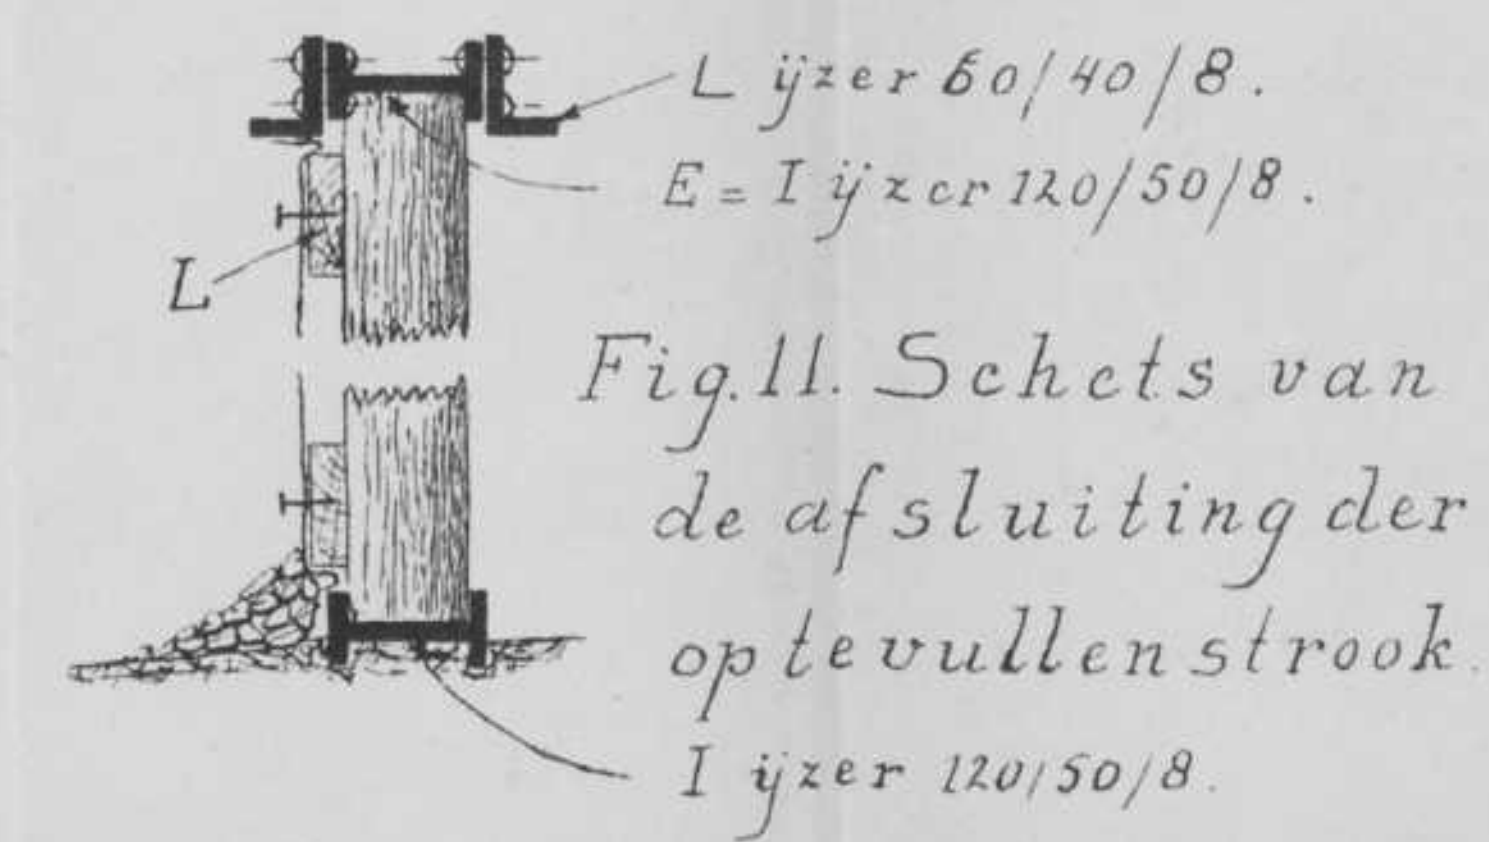 L ijzer 60/40/8.
E = I ijzer 120/50/8.
L
Fig. 11. Schets van
de afsluiting der
op te vullen strook.
I ijzer 120/50/8.